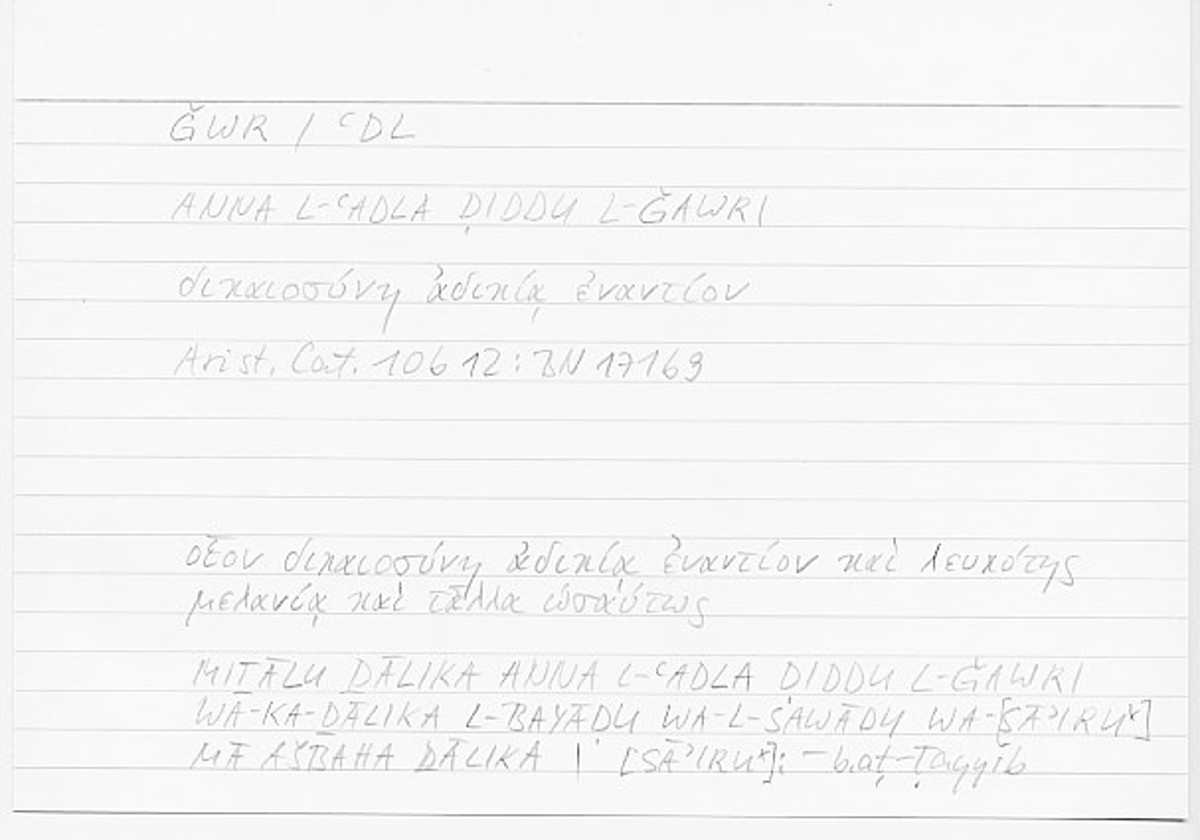 ǦWR / ʿDL
ANNA L-ʿADLA ḌIDDU L-ǦAWRI
δικαιοσύνη ἀδικίᾳ ἐναντίον
Arist. Cat. 10b12 : BN 171b9
οἷον δικαιοσύνη ἀδικίᾳ ἐναντίον καὶ λευκότης
μελανίᾳ καὶ τἆλλα ὡσαύτως
MIṮĀLU ḎĀLIKA ANNA L-ʿADLA ḌIDDU L-ǦAWRI
WA-KA-ḎĀLIKA L-BAYĀḌU WA-L-SAWĀDU WA-[SĀʾIRUˣ]
MĀ AŠBAHA ḎĀLIKA | [SĀʾIRUˣ]: – b.aṭ-Ṭayyib